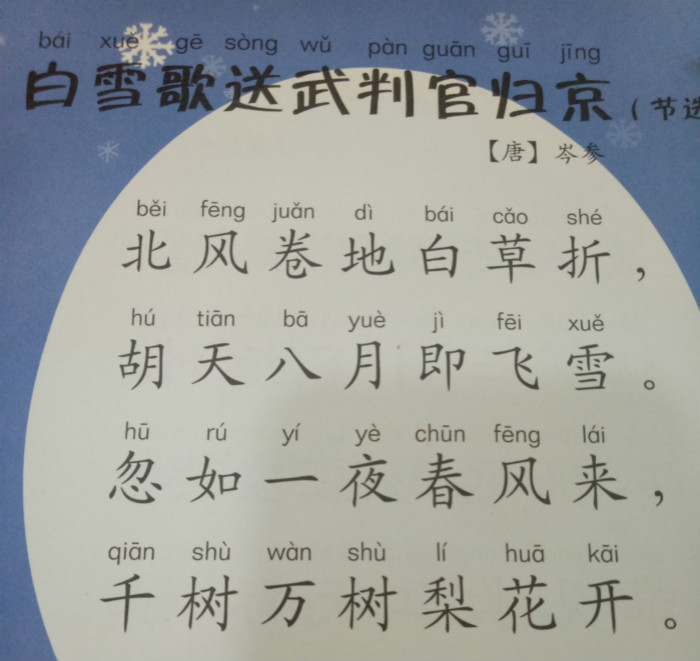 bái xuě gē sòng wǔ pàn guān guī jīng
白雪歌送武判官归京（节选
【唐】岑参
běi fēng juǎn dì bái cǎo shé
北风卷地白草折，
hú tiān bā yuè jì fēi xuě
胡天八月即飞雪。
hū rú yí yè chūn fēng lái
忽如一夜春风来，
qiān shù wàn shù lí huā kāi
千树万树梨花开。